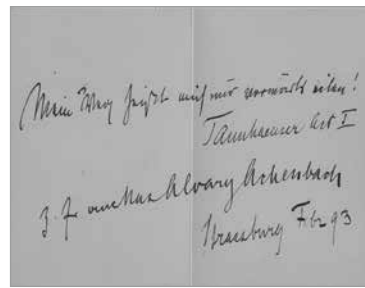 Mein Weg heißt mich nur vorwärts eilen!
Tannhaeuser Act I
Max Alvary Achenbach
Strassburg Febr 93